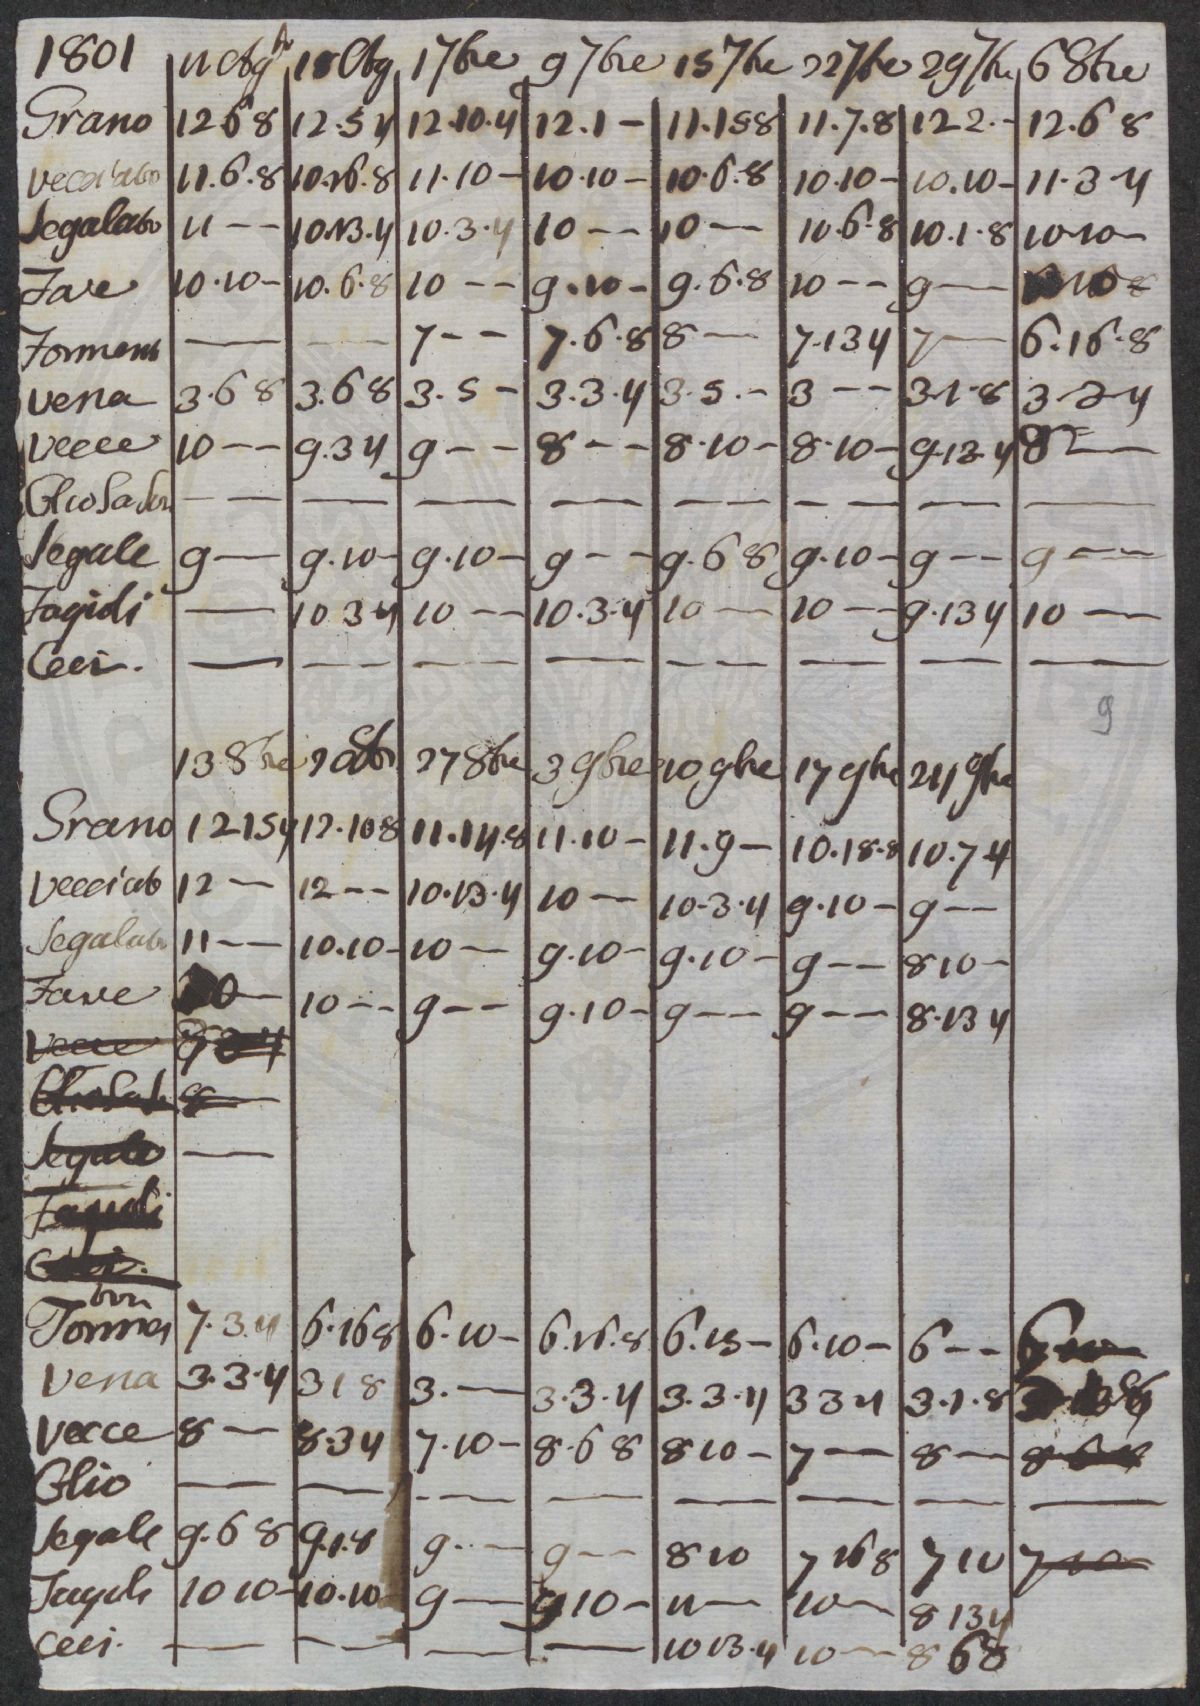 1801 11 Ag 18 Ag 1 7bre 9 7bre 15 7bre 22 7bre 29 7bre 6 8bre
Grano 12 6 8 12.5 4 12.10.4 12.1 - 11.15 8 11.7.8 12 2. - 12.6 8
Vecciato 11.6.8 10.16.8 11.10 - 10.10 - 10.6.8 10.10 - 10.10 - 11.3 4
Segalato 11 - - 10.13.4 10.3.4 10 - - 10 - - 10.6.8 10.1.8 10 10 -
Fave 10.10 - 10.6.8 10 - - 9.10 - 9.6.8 10 - - 9 —
Formento — - - - 7 - - 7.6.8 8 — 7.13 4 7 — 6.16.8
Vena 3.6 8 3.6 8 3.5 - 3.3.4 3.5. - 3 - - 3 1.8 3 3 4
Vecce 10 - - 9.3 4 9 - - 8 - - 8.10 - 8.10 - 9.13 4 8 —
- - - — — — - - - - - - — —
Segale 9 — 9.10 - 9.10 - 9 - - 9.6 8 9.10 - 9 - - 9 - - -
Fagioli — 10 3 4 10 - - 10.3.4 10 — 10 - - 9.13 4 10 —
Ceci. — - - - - - - — - - - — — —
9
13 8bre 20 8bre 27 8bre 3 9bre 10 9bre 17 9bre 24 9bre
Grano 12 15 4 12.10 8 11.14.8 11.10 - 11.9 - 10.18.8 10.7 4
Vecciato 12 — 12 - - 10.13.4 10 — 10.3.4 9.10 - 9 - -
Segalato 11 - - 10.10 - 10 — 9.10 - 9.10 - 9 - - 8 10 -
Fave 10 - - 9 - - 9.10 - 9 - - 9 - - 8.13 4
Vecce
8 —
Segale —
Fagioli
Ceci.
7.3.4 6.16 8 6.10 - 6.16.8 6.13 - 6.10 - 6 - -
Vena 3.3.4 3 1 8 3. — 3.3.4 3.3.4 3 3 4 3.1.8
Vecce 8 — 8.3 4 7.10 - 8.6 8 8 10 - 7 — 8 —
Olio — — - - - — — — — —
Segale 9.6 8 9.1.8 9 . - - 9 - - 8 10 7 16 8 7 10 7 10
Fagioli 10 10 - 10.10 9 — 9 10 - 11 — 10 — 8 13 4
Ceci. — - - - — — 10 13.4 10 — 8 6 8